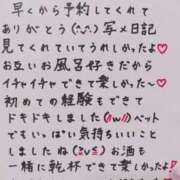 早くから予約してくれて
ありがとう(^^)写メ日記
見てくれていてうれしかったよ♡
お互いお風呂好きだから
イチャイチャできて楽しかった〜♡
初めての経験もできて
ドキドキしました(/ω\)ベット
でもいっぱい気持ちいいこと
しましたね(≧v≦)お酒も
一緒に乾杯できて楽しかったよ!